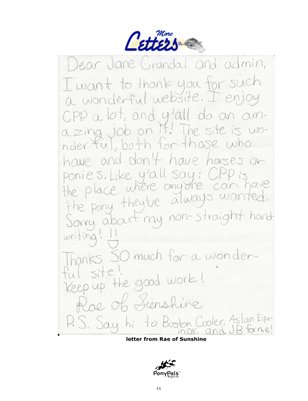 More
Letters
Dear Jane Crandal and admin,
I want to thank you for such
a wonderful website. I enjoy
CPP a lot, and y'all do an am-
azing job on it! The site is wo-
nderful, both for those who
have and don't have horses or
ponies. Like y'all say: CPP is
the place where anyone can have
the pony they've always wanted.
Sorry about my non-straight hand
writing! !!
Thanks SO much for a wonder-
ful site!
Keep up the good work!
Rae of Sunshine
P.S. Say hi to Boston Cooler, Aslan
and JB for me!
letter from Rae of Sunshine
PonyPals
11